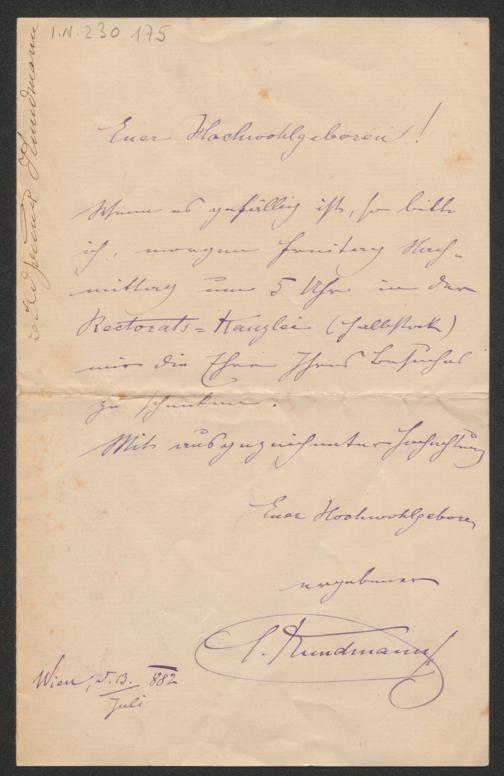 I.N. 230 175
Euer Hochwohlgeboren!
Wenn es gefällig ist, so bitte
ich, morgen Freitag Nach-
mittag um 5 Uhr in der
Rectorats=Kanzlei (Halbstock)
mir die Ehre Ihres Besuches
zu schenken.
Mit ausgezeichneter Hochachtung
Euer Hochwohlgeboren
ergebener
C. Kundmann
Wien, d. 13. 882
Juli
Kundmann